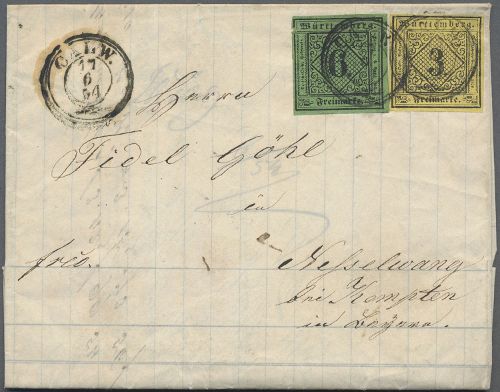 CALW.
17
6
54
Württemberg.
6
Freimarke.
Württemberg.
3
Freimarke.
Herrn
Fidel Göhl
in
frco.
Nesselwang
bei Kempten
in Bayern.